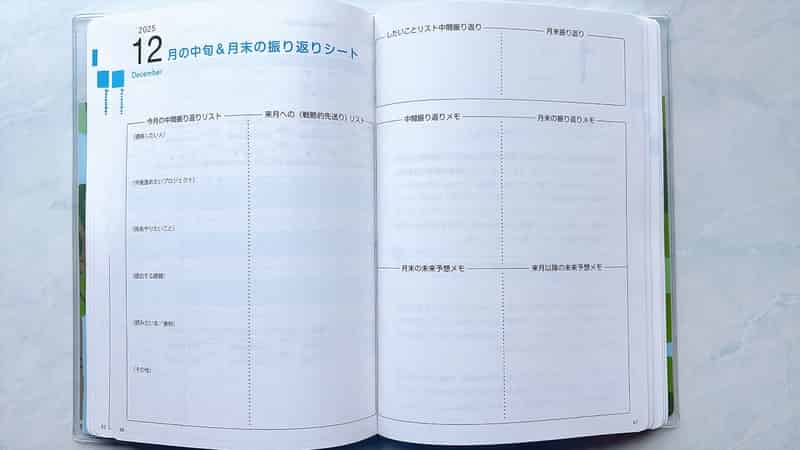 2025
12 月の中旬&月末の振り返りシート
December
今月の中間振り返りリスト
来月への(戦略的先送り)リスト
(連絡したい人)
(今後進めたいプロジェクト)
(提出する課題)
(その他)
したいことリスト中間振り返り
月末振り返り
中間振り返りメモ
月末の振り返りメモ
月末の未来予想メモ
来月以降の未来予想メモ
67